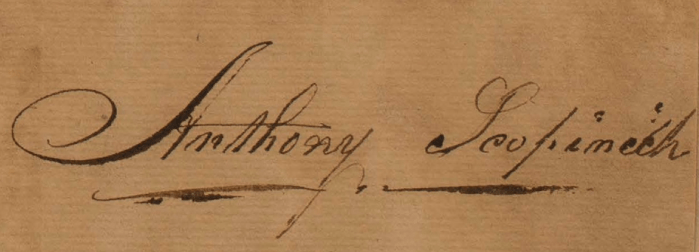 Anthony Scopinich